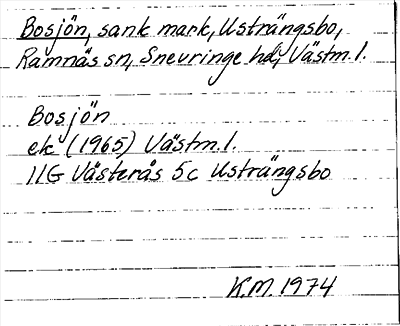 Bosjön, sank mark, Usträngsbo,
Ramnäs sn, Snevringe hd, Västm.l.
Bosjön
ek (1965) Västm.l.
11G Västerås 5c Usträngsbo
K.M. 1974